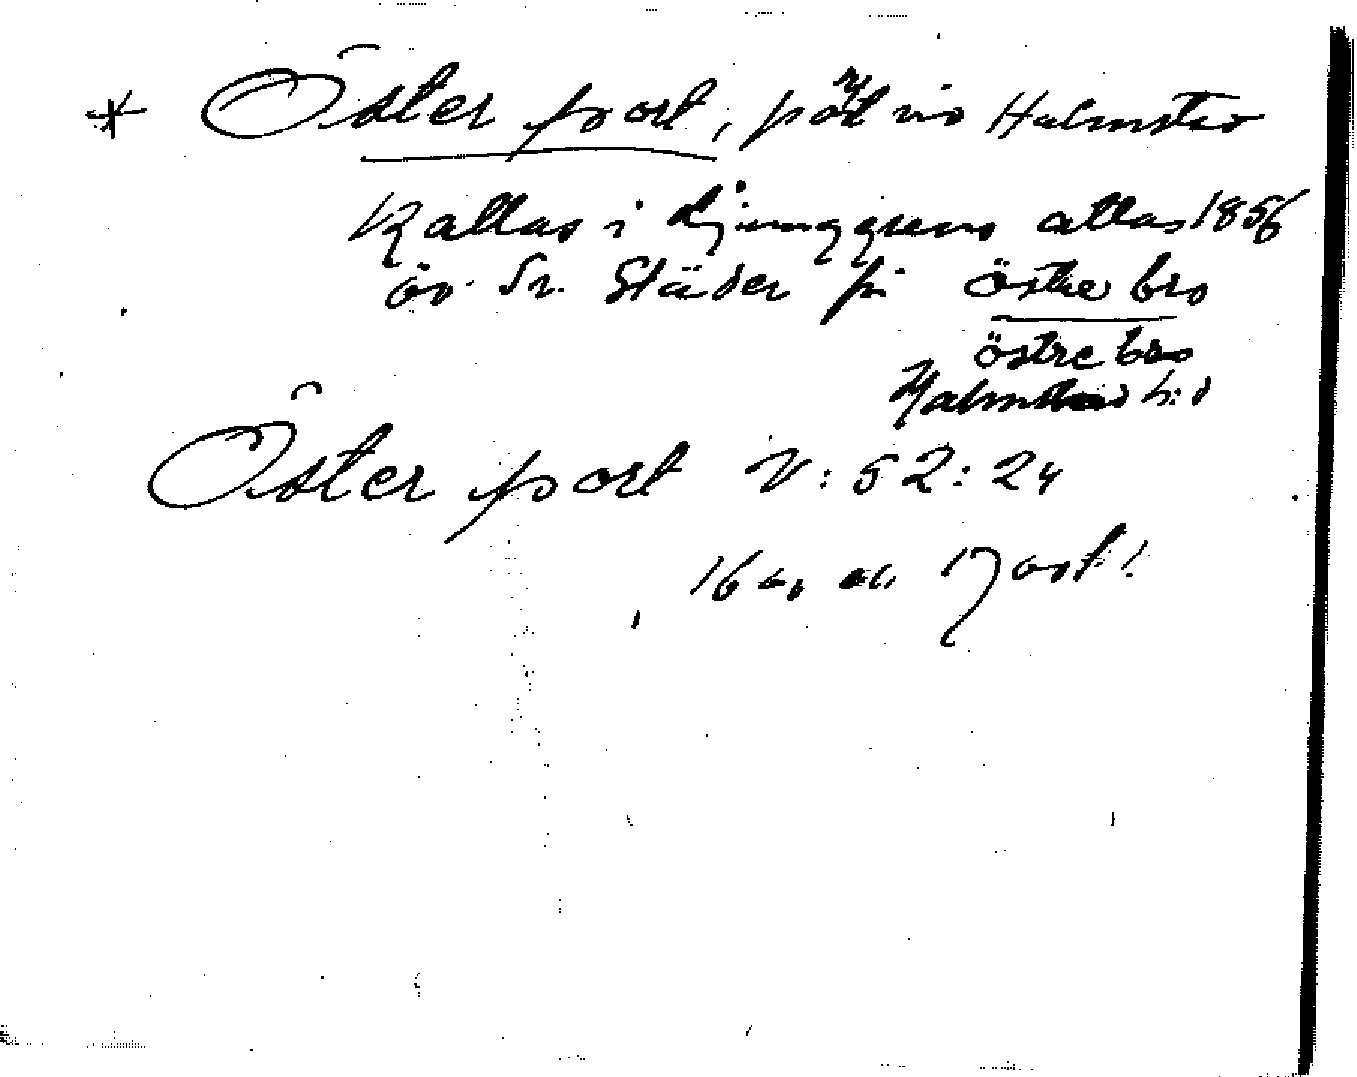 * Öster port, på vid Halmstad
Kallas i Ljunggrens atlas 1856
öv. Sv. Städer för östre bro
östre bro
Halmstad h:d
Öster port V:52:24
16 17